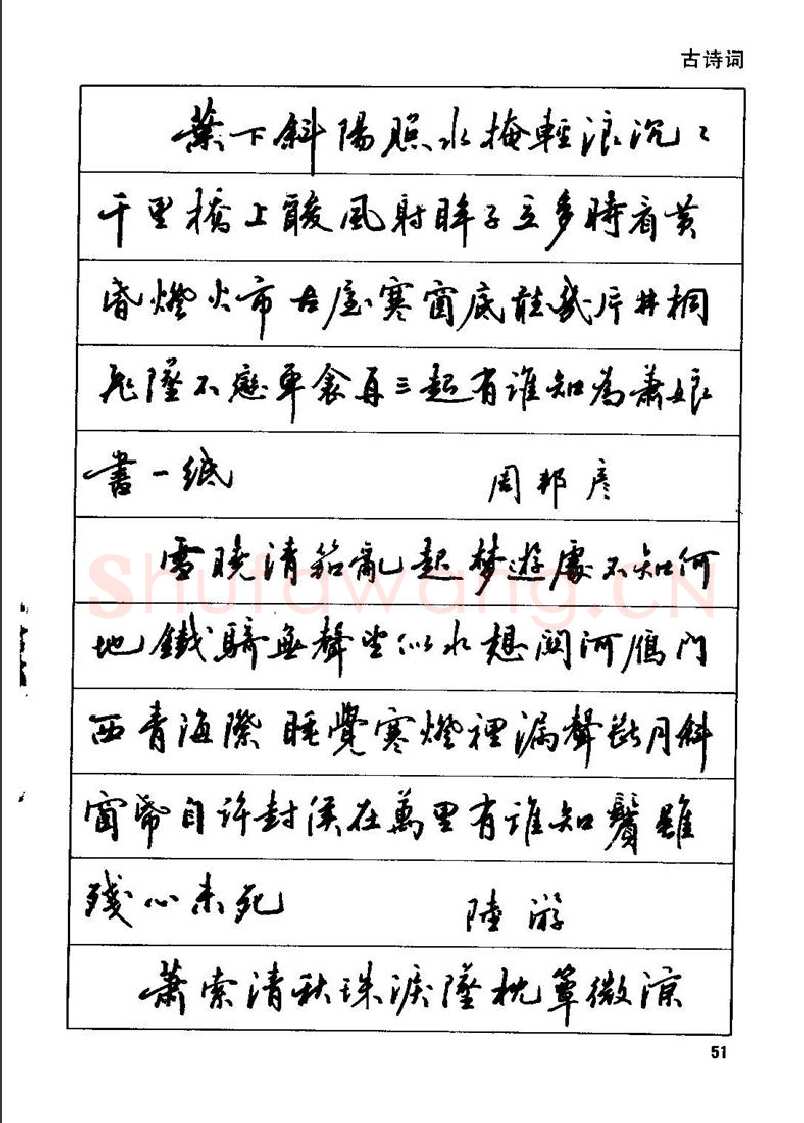 古诗词
葉下斜陽照水掩輕浪沉々
千里橋上酸風射眸子立多時看黄
昏燈火市古屋寒窗底聽幾片井桐
飛墜不戀單衾再三起有谁知為蕭娘
書一紙 周邦彦
雪曉清笳亂起夢遊處不知何
地鐵騎無聲望似水想関河雁门
西青海際睡覺寒燈裡漏聲斷月斜
窗帋自许封侯在萬里有谁知鬢雖
殘心未死 陸游
蕭索清秋珠淚墜枕簟微涼
51
Shufawang.CN